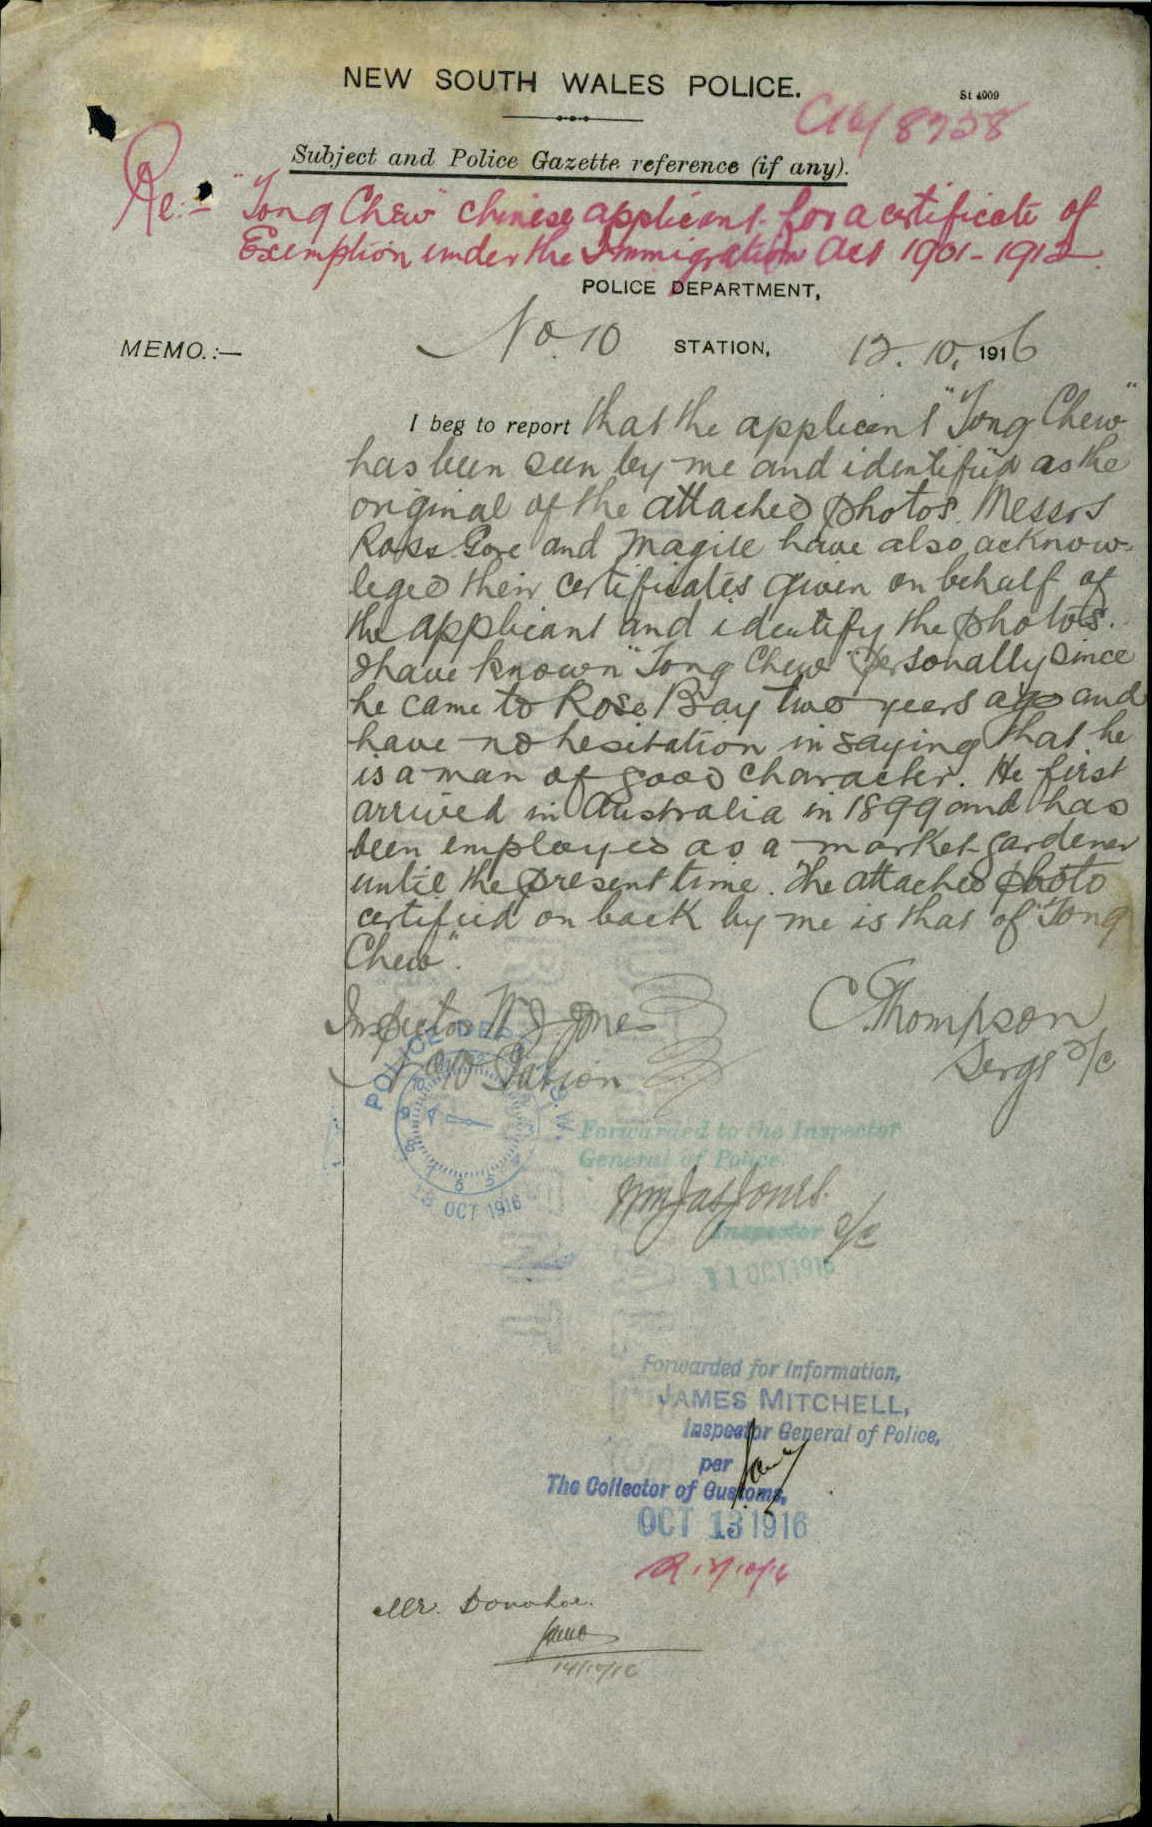 NEW SOUTH WALES POLICE.
St 4909
C16/8758
Subject and Police Gazette reference (if any).
Re:- "Tong Chew" chinese applicant for a certificate of
Exemption under the Immigration Act 1901-1912.
POLICE DEPARTMENT,
MEMO.:— No. 10 STATION, 12. 10. 1916
I beg to report that the applicant "Tong Chew"
has been seen by me and identified as the
original of the attached photos. Messrs
Ross Gore and Magill have also acknow-
leged their certificates given on behalf of
the applicant and identify the photos.
I have known "Tong Chew" personally since
he came to Rose Bay two years ago and
have no hesitation in saying that he
is a man of good character. He first
arrived in Australia in 1899 and has
been employed as a market gardener
until the present time. The attached photo
certified on back by me is that of "Tong
Chew".
C. Thompson
Sergt o/c
Inspector W J Jones
No 10 Station
POLICE DEP
13 OCT 1916
Forwarded to the Inspector
General of Police.
Wm Jas Jones.
Inspector o/c
OCT 1916
Forwarded for Information,
JAMES MITCHELL,
Inspector General of Police,
per
The Collector of Customs,
OCT 13 1916
Mr. Donohoe.
14/10/16